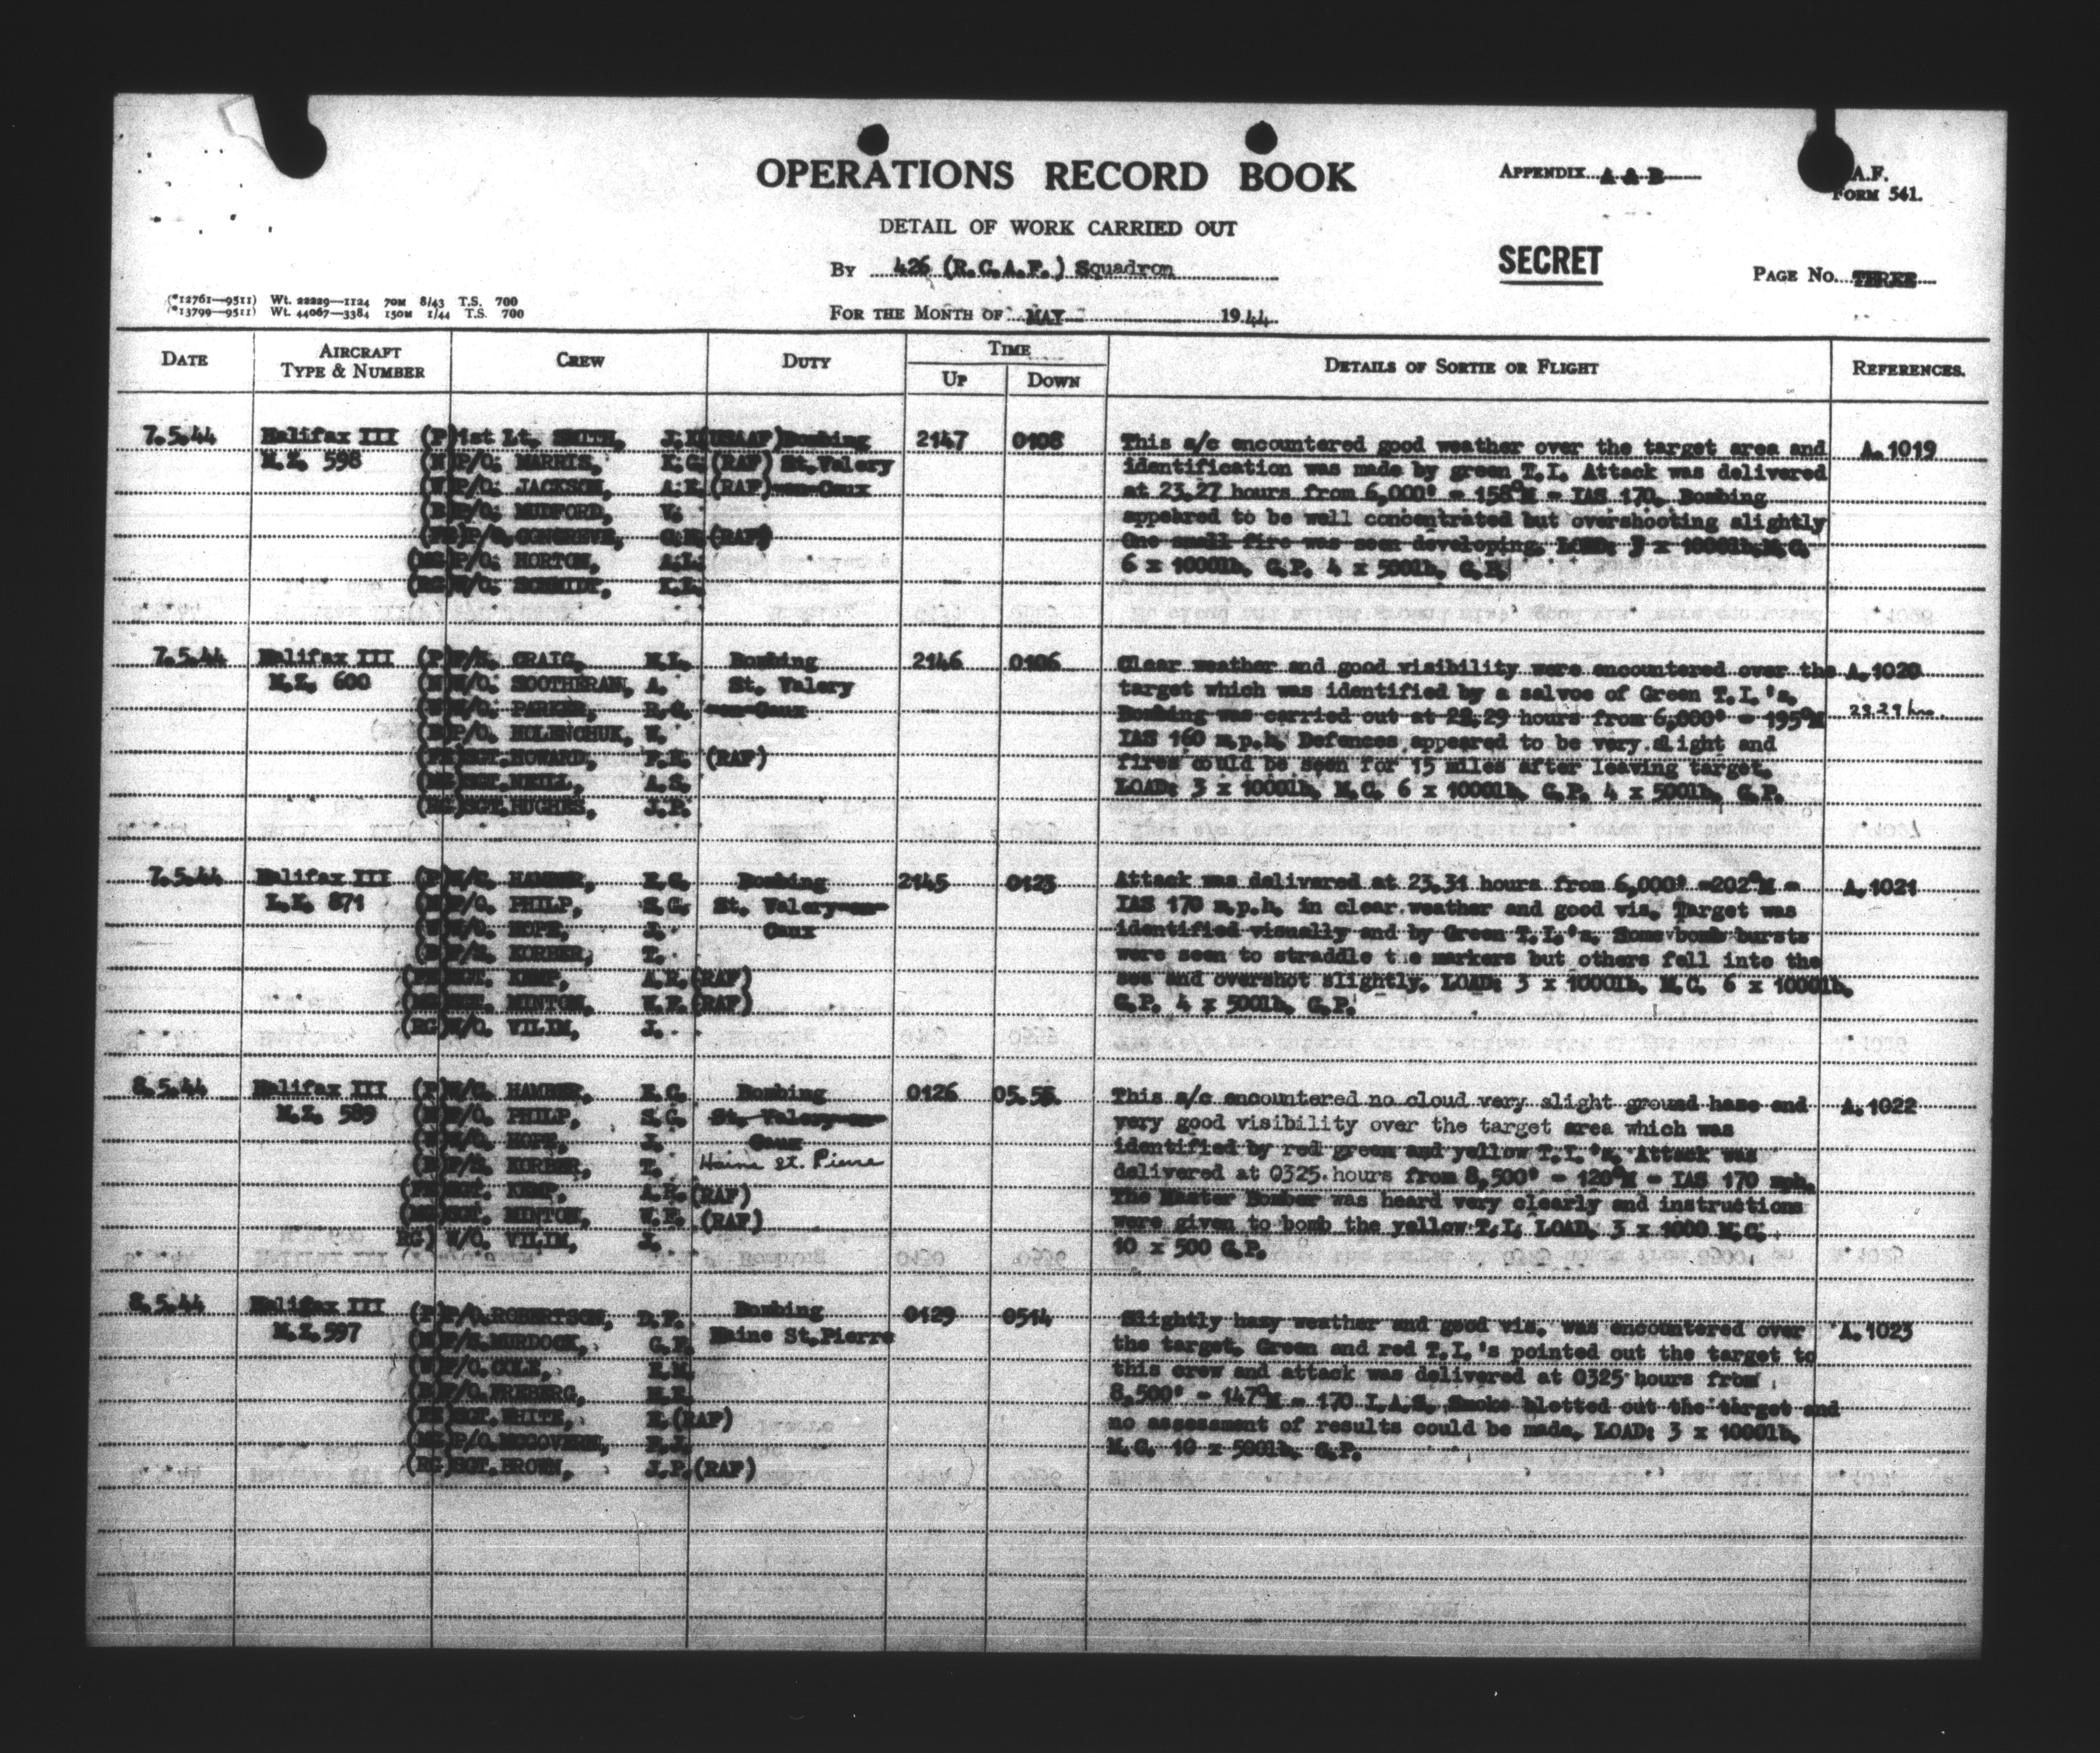 OPERATIONS RECORD BOOK
APPENDIX A & B
A.F.
FORM 541.
DETAIL OF WORK CARRIED OUT
By 426 (R.C.A.F.) Squadron
SECRET
PAGE No. THREE
(*12761—9511) Wt. 22229—1124 70M 8/43 T.S. 700
(*13799—9511) Wt. 44067—3384 150M 1/44 T.S. 700
FOR THE MONTH OF MAY 1944
DATE
AIRCRAFT TYPE & NUMBER
CREW
DUTY
TIME
UP
DOWN
DETAILS OF SORTIE OR FLIGHT
REFERENCES.
7.5.44
Halifax III
M.Z. 598
(P) 1st Lt. SMITH, (USAAF)
P/O. MARRIS, (RAF)
P/O. JACKSON, (RAF)
P/O. MUDFORD, V.
CONGREVE, (RAF)
P/O. HORTON, A.L.
(RG) W/O. SCHMIDT, K.L.
Bombing
St. Valery
en Caux
2147
0108
This a/c encountered good weather over the target area and
identification was made by green T.I. Attack was delivered
at 23.27 hours from 6,000' - 158°M - IAS 170. Bombing
appeared to be well concentrated but overshooting slightly
One small fire was seen developing. LOAD: 3 x 1000lb. M.C.
6 x 1000lb. G.P. 4 x 500lb. G.P.
A.1019
7.5.44
Halifax III
M.Z. 600
(P) CRAIG,
W/O. SOOTHERAN, A.
W/O. PARKER, R.C.
P/O. HOLENCHUK, W.
SGT. HOWARD, (RAF)
SGT. NEILL, A.S.
(RG) SGT. HUGHES, J.P.
Bombing
St. Valery
en Caux
2146
0106
Clear weather and good visibility were encountered over the
target which was identified by a salvoe of Green T.I.'s.
Bombing was carried out at 23.29 hours from 6,000' - 195°M
IAS 160 m.p.h. Defences appeared to be very slight and
fires could be seen for 15 miles after leaving target.
LOAD: 3 x 1000lb. M.C. 6 x 1000lb. G.P. 4 x 500lb. G.P.
A.1020
23.29 hrs.
7.5.44
Halifax III
L.K. 871
(P) W/C. HAMBER, E.C.
P/O. PHILP, S.G.
W/O. HOPE, J.
KORBER, T.
SGT. KEMP, A.R. (RAF)
SGT. MINTON, W.F. (RAF)
(RG) W/O. VILIM, J.
Bombing
St. Valery en
Caux
2145
0123
Attack was delivered at 23.31 hours from 6,000' -202°M -
IAS 170 m.p.h. in clear weather and good vis. Target was
identified visually and by Green T.I.'s. Some bomb bursts
were seen to straddle the markers but others fell into the
sea and overshot slightly. LOAD: 3 x 1000lb. M.C. 6 x 1000lb.
G.P. 4 x 500lb. G.P.
A.1021
8.5.44
Halifax III
M.Z. 589
(P) W/C. HAMBER, E.C.
P/O. PHILP, S.G.
W/O. HOPE, J.
KORBER, T.
SGT. KEMP, A.R. (RAF)
SGT. MINTON, W.F. (RAF)
RG) W/O. VILIM, J.
Bombing
St. Valery en
Caux
Haine St. Pierre
0126
05.55.
This a/c encountered no cloud very slight ground haze and
very good visibility over the target area which was
identified by red green and yellow T.I.'s. Attack was
delivered at 0325 hours from 8,500' - 120°M - IAS 170 mph.
The Master Bomber was heard very clearly and instructions
were given to bomb the yellow T.I. LOAD. 3 x 1000 M.C.
10 x 500 G.P.
A.1022
8.5.44
Halifax III
M.Z. 597
(P) P/O. ROBERTSON, D.F.
MURDOCK,
P/O. COLE,
P/O. FREBERG,
SGT. WHITE, (RAF)
P/O. MCGOVERN,
(RG) SGT. BROWN, J.P. (RAF)
Bombing
Haine St. Pierre
0129
0514
Slightly hazy weather and good vis. was encountered over
the target. Green and red T.I.'s pointed out the target to
this crew and attack was delivered at 0325 hours from
8,500' - 147°M - 170 I.A.S. Smoke blotted out the target and
no assessment of results could be made. LOAD: 3 x 1000lb.
M.C. 10 x 500lb. G.P.
A.1023